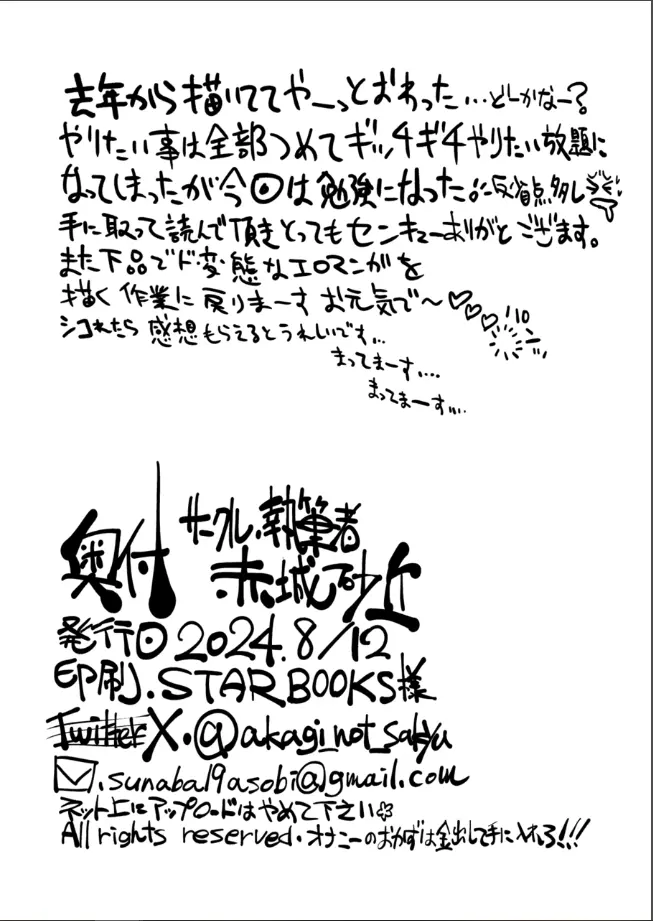 去年から描いててやーっとおわった…どしかなー?
やりたい事は全部つめてギッチギチやりたい放題に
なってしまったが今回は勉強になった。反省点多し
手に取って読んで頂きとってもセンキューありがとございます。
また下品でド変態なエロマンガを
描く作業に戻りまーす お元気で〜♡♡♡
シコれたら感想もらえるとうれしいです…
まってまーす…
まってまーす…
奥付
サークル.執筆者
赤城砂丘
発行日 2024.8/12
印刷.STARBOOKS様
Twitter X.@akagi_not_sakyu
.sunaba19asobi@gmail.com
ネット上にアップロードはやめて下さい
All rights reserved.オナニーのおかずは金出して手に入れろ!!!